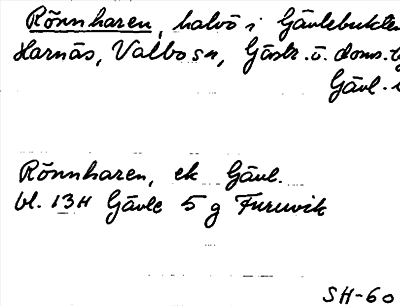 Rönnharen, halvö i Gävlebukten
Harnäs, Valbo sn, Gästr. ö. doms.
Gävl.
Rönnharen, ek Gävl.
bl. 13H Gävle 5 g Furuvik
SH-60